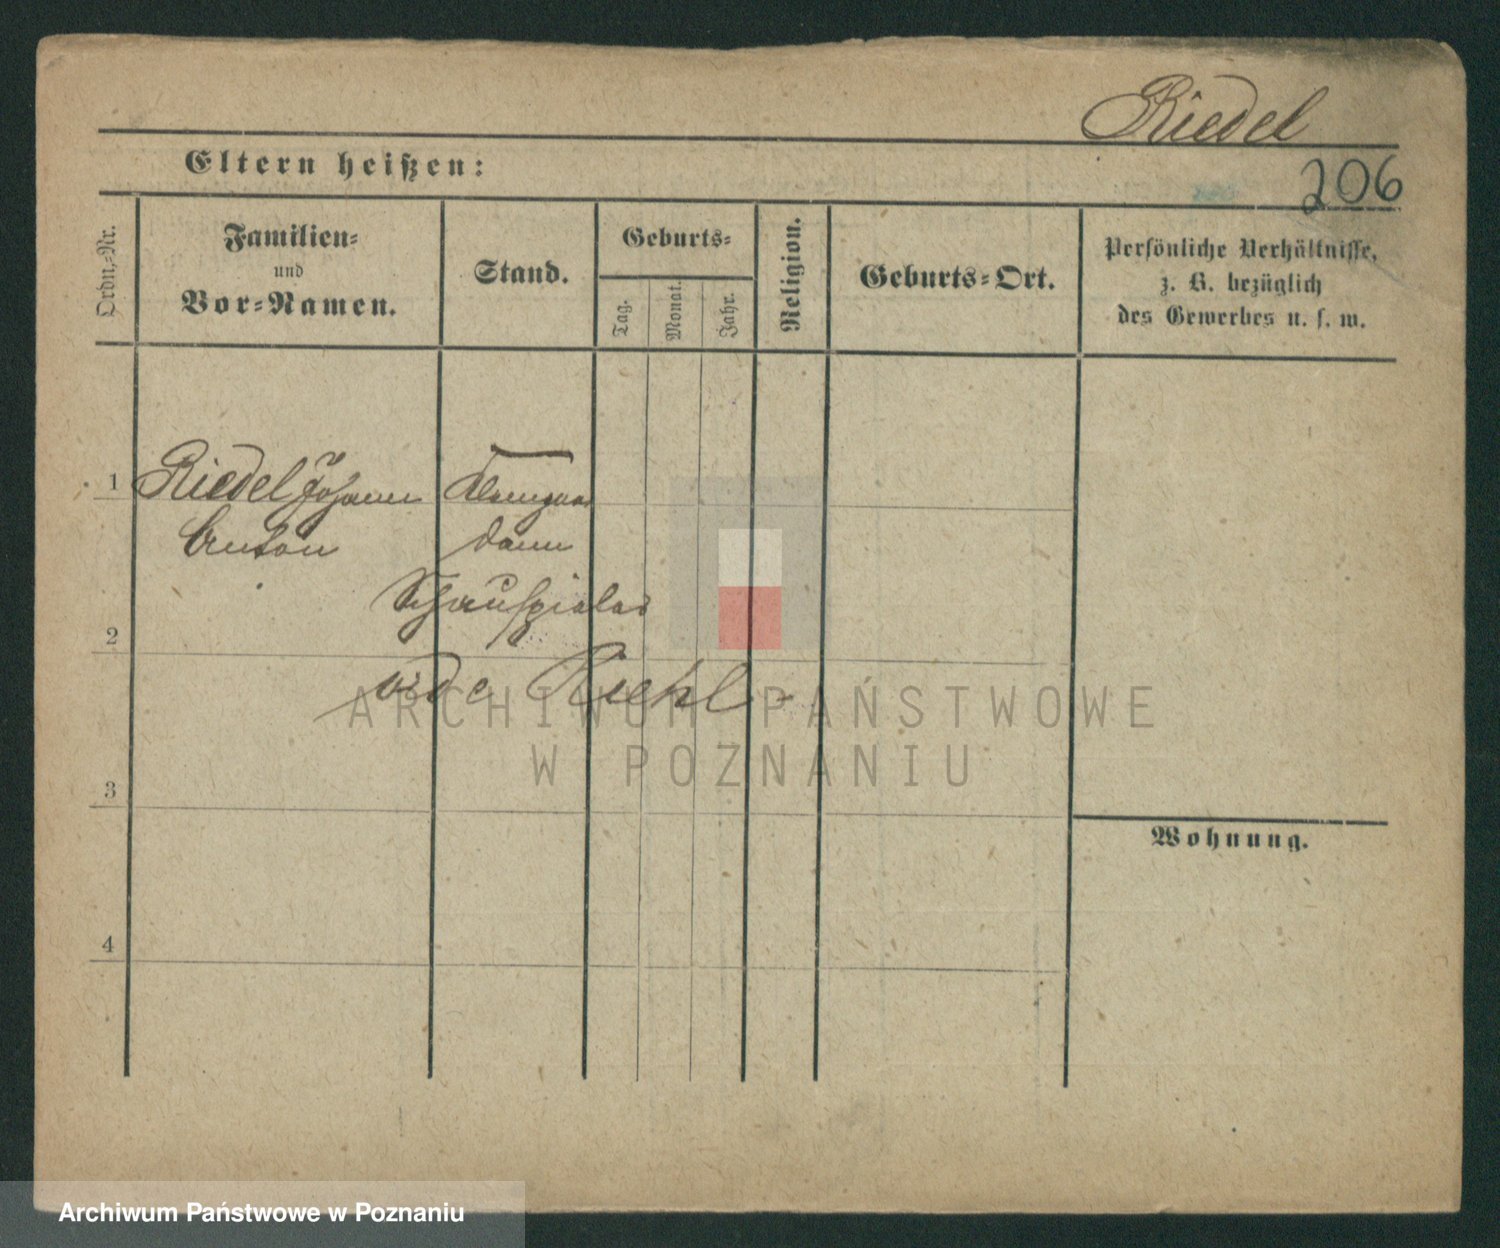 Riedel
206
Eltern heißen:
Ordn.-Nr.
Familien-
und
Vor-Namen.
Stand.
Geburts-
Tag.
Monat.
Jahr.
Religion.
Geburts-Ort.
Persönliche Verhältnisse,
z. B. bezüglich
des Gewerbes u. s. w.
1
Riedel Johann
Anton
dann
Schauspieler
vide Riehl
2
3
4
Wohnung.
ARCHIWUM PAŃSTWOWE
W POZNANIU
Archiwum Państwowe w Poznaniu